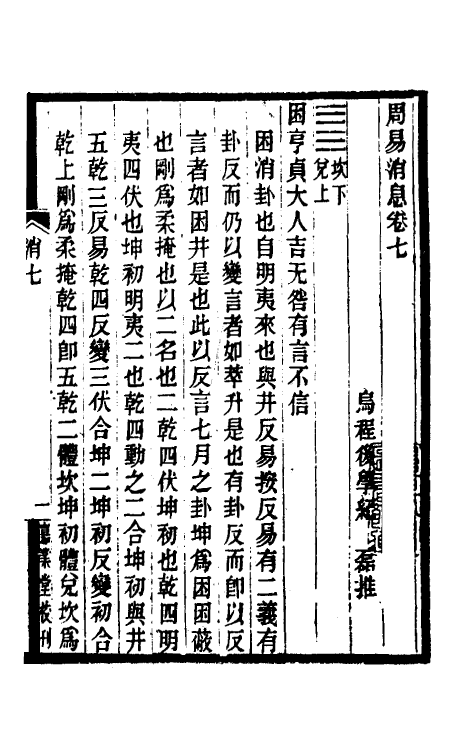 周易消息卷七
烏程後學紀 磊推
坎下
兌上
困亨貞大人吉无咎有言不信
困消卦也自明夷來也與井反易按反易有二義有
卦反而仍以變言者如萃升是也有卦反而卽以反
言者如困井是也此以反言七月之卦坤爲困困蔽
也剛爲柔掩也以二名也二乾四伏坤初也乾四明
夷四伏也坤初明夷二也乾四動之二合坤初與井
五乾三反易乾四反變三伏合坤二坤初反變初合
乾上剛爲柔掩乾四卽五乾二體坎坤初體兌坎爲
消七
一
堂叢刊